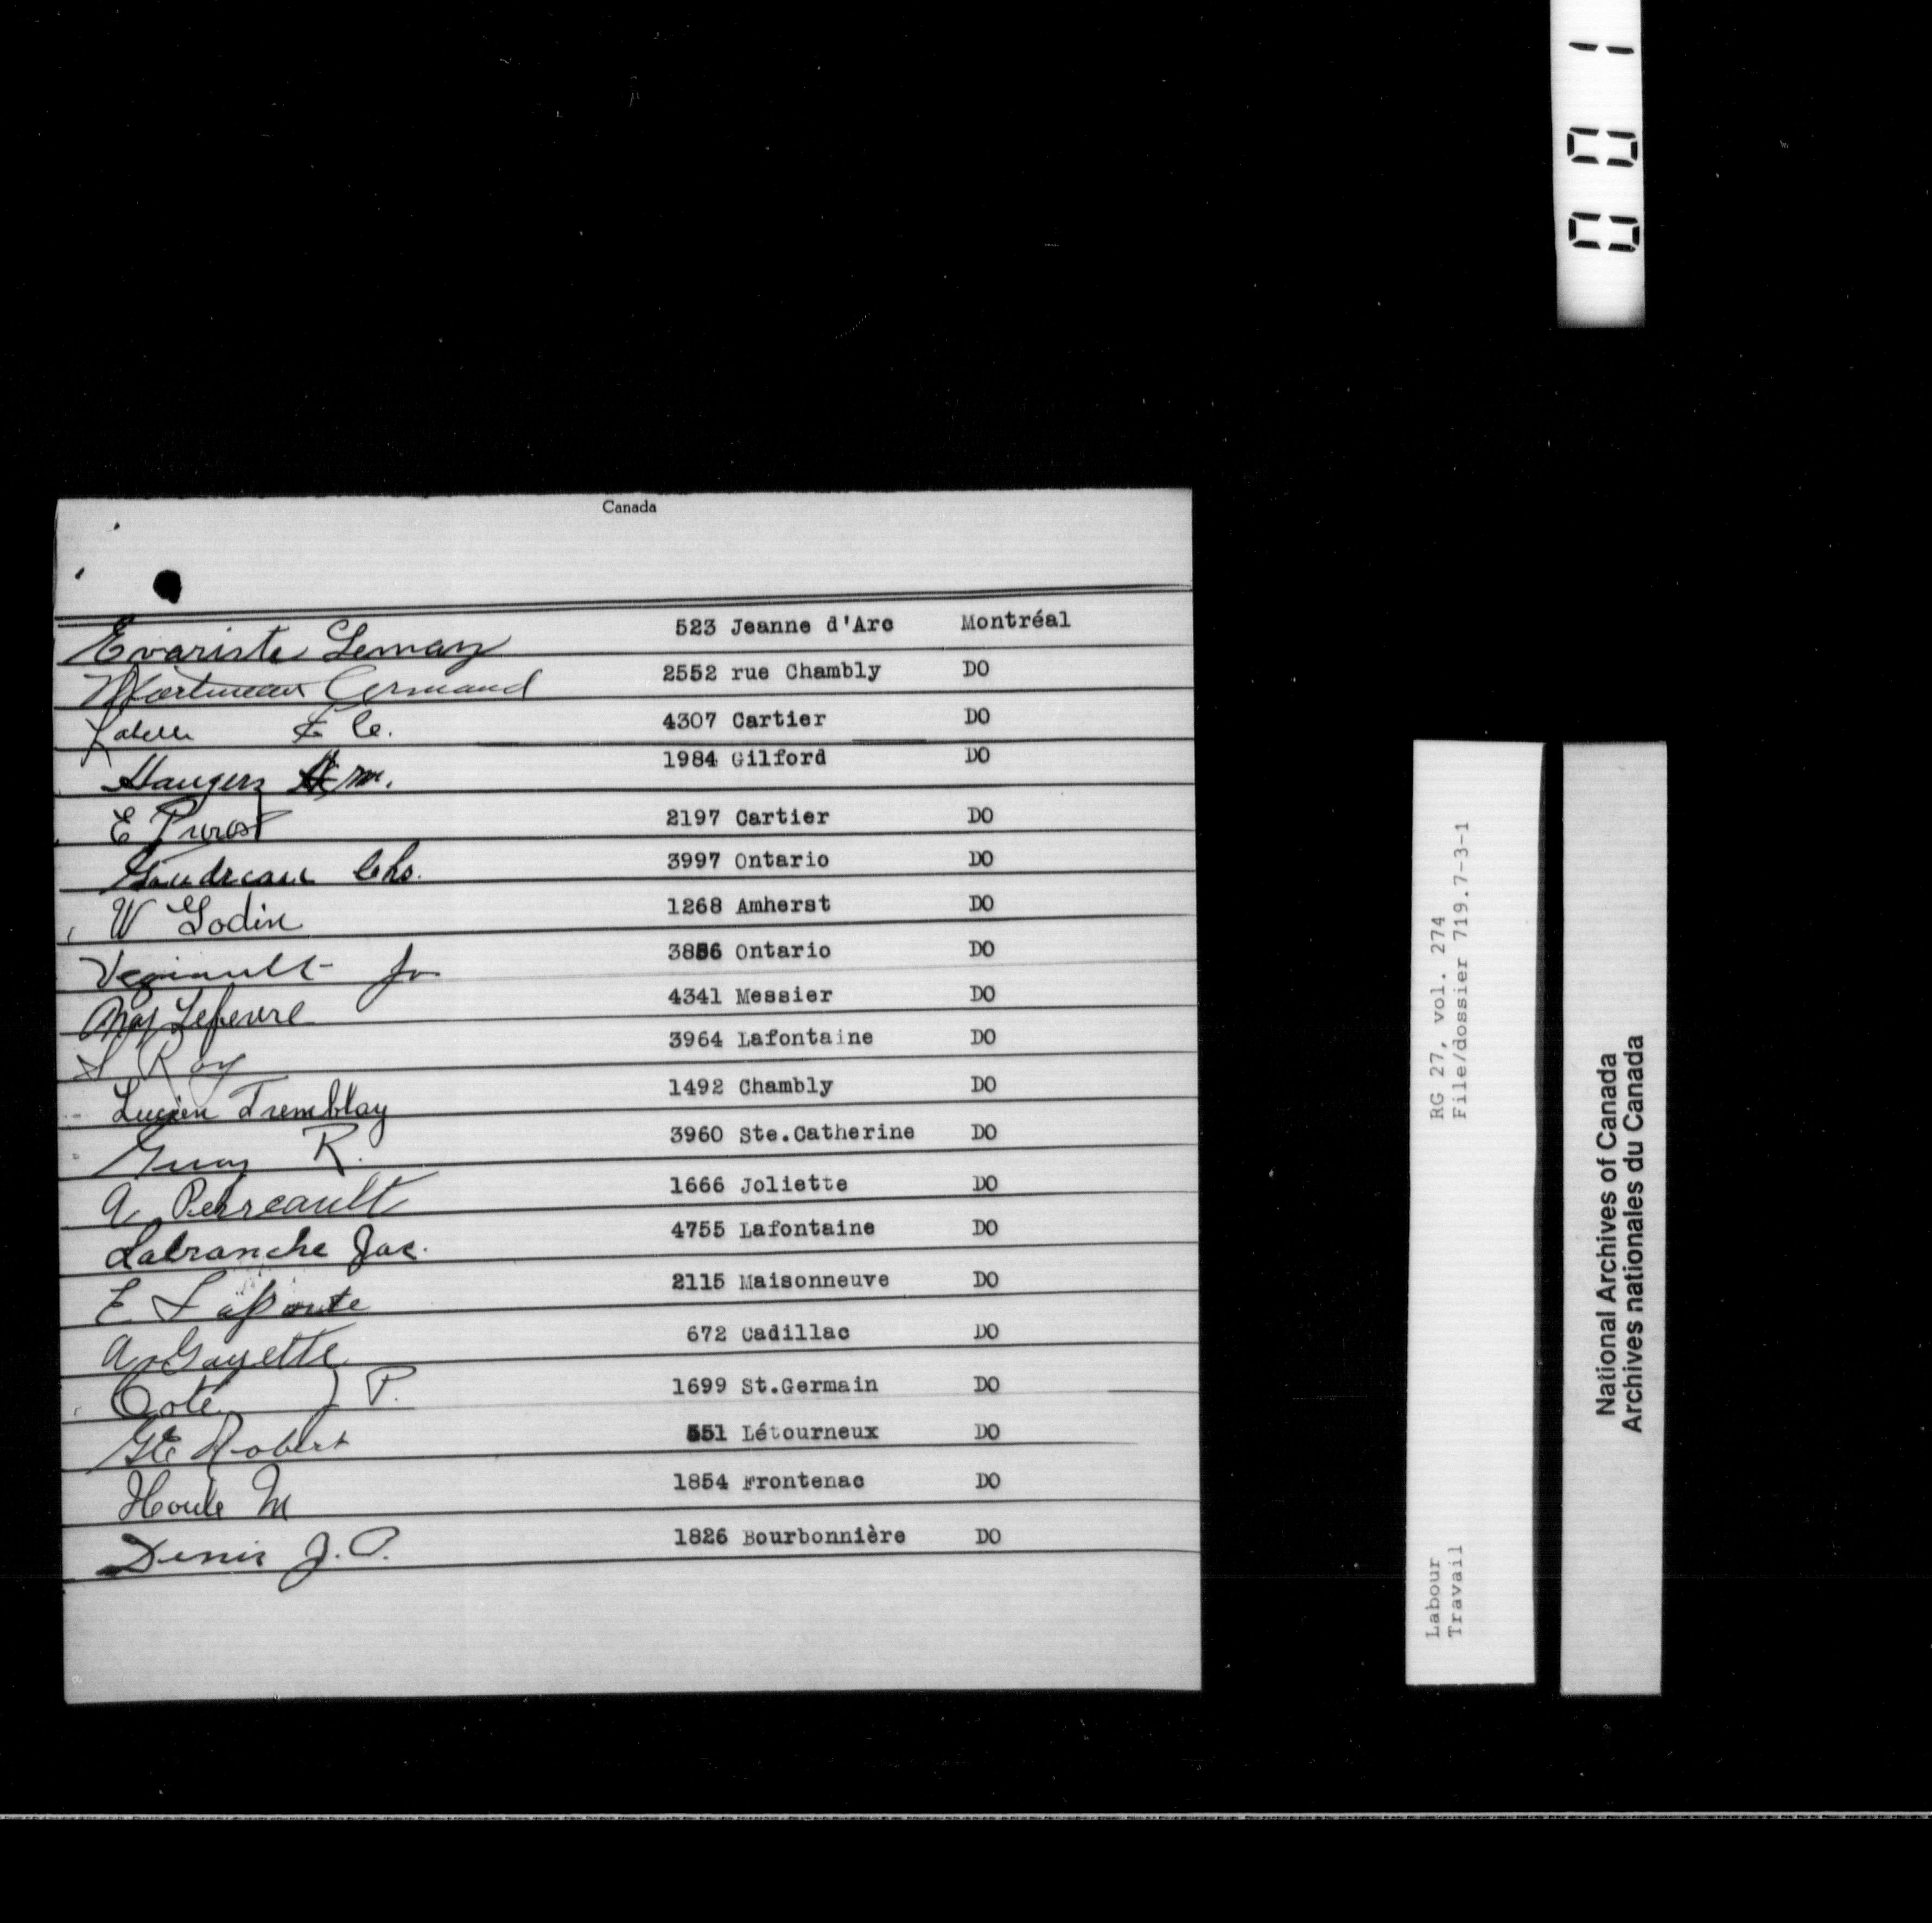 001
Canada
Evariste Lemay 523 Jeanne d'Arc Montréal
Martineau Armand 2552 rue Chambly DO
4307 Cartier DO
1984 Gilford DO
E Prevost 2197 Cartier DO
Gaudreau Chs. 3997 Ontario DO
W Godin 1268 Amherst DO
3856 Ontario DO
Lefebvre 4341 Messier DO
S Roy 3964 Lafontaine DO
Lucien Tremblay 1492 Chambly DO
Guay R. 3960 Ste.Catherine DO
A Perreault 1666 Joliette DO
Labranche Jac. 4755 Lafontaine DO
E Lapointe 2115 Maisonneuve DO
A Goyette 672 Cadillac DO
Coté J P. 1699 St.Germain DO
Robert 551 Létourneux DO
Houle M 1854 Frontenac DO
Denis J.P. 1826 Bourbonnière DO
Labour
Travail
RG 27, vol. 274
File/dossier 719.7-3-1
National Archives of Canada
Archives nationales du Canada